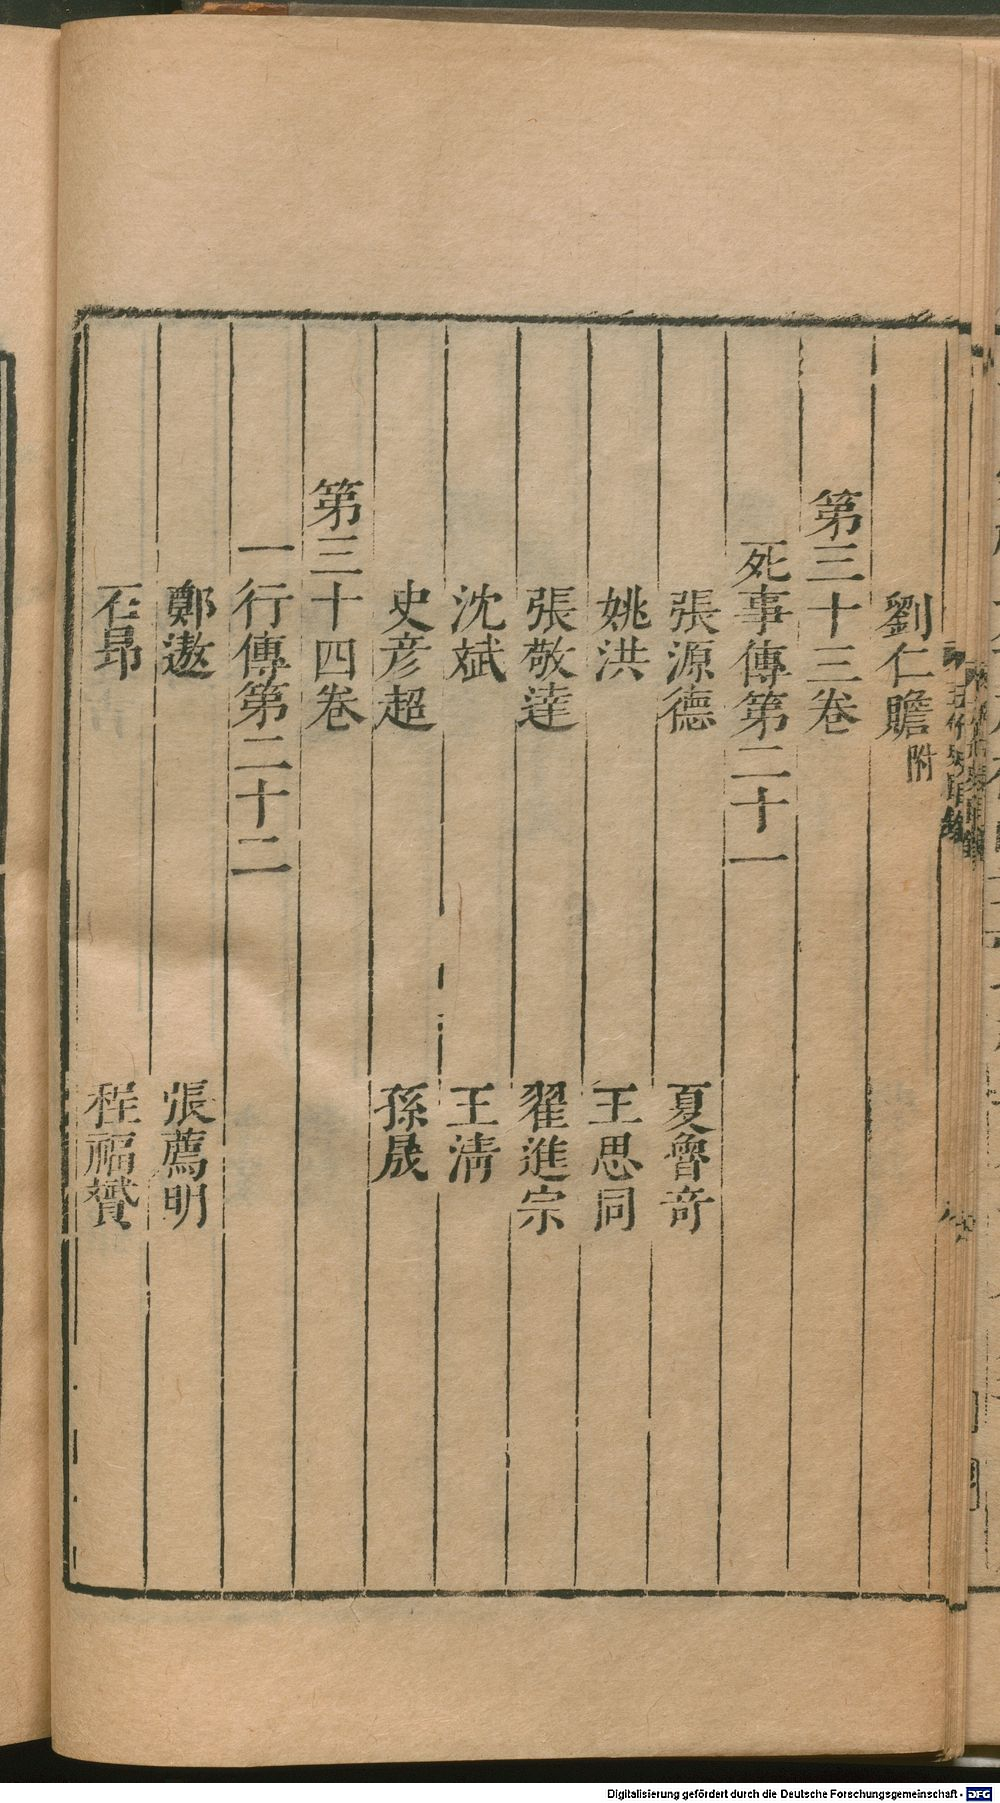 劉仁贍附
第三十三卷
死事傳第二十一
張源德 夏魯奇
姚洪 王思同
張敬達 翟進宗
沈斌 王清
史彦超 孫晟
第三十四卷
一行傳第二十二
鄭遨 張薦明
石昂 程福贇
Digitalisierung gefördert durch die Deutsche Forschungsgemeinschaft - DFG